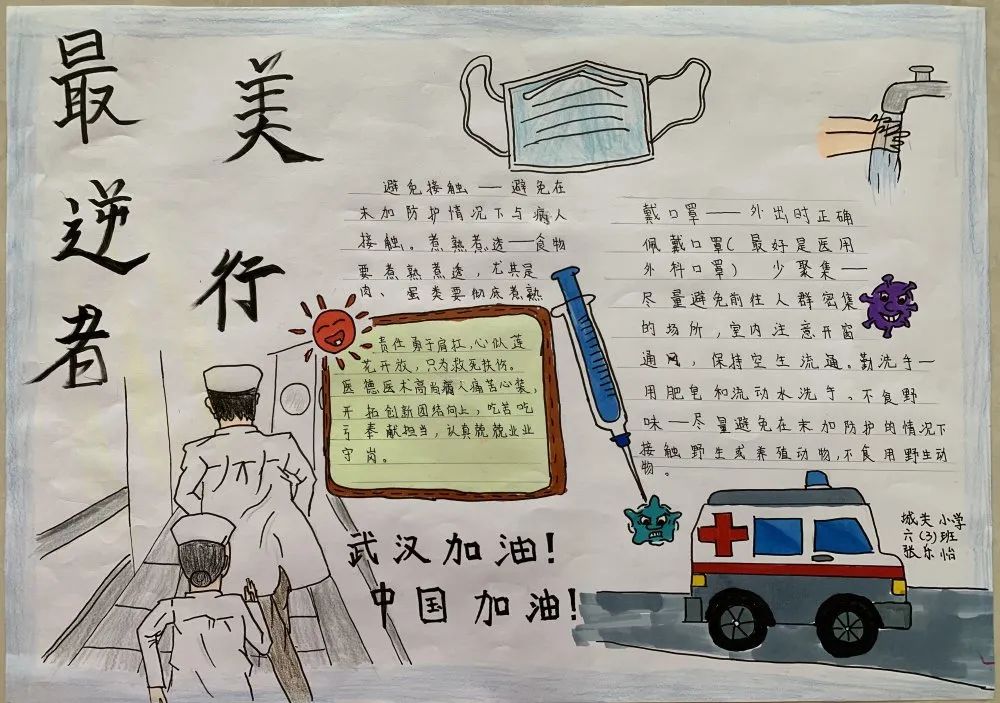 最美
逆行
者
避免接触——避免在
未加防护情况下与病人
接触。煮熟煮透——食物
要煮熟煮透，尤其是
肉、蛋类要彻底煮熟
责任勇于肩扛，心似莲
花开放，只为救死扶伤。
医德医术高为病人痛苦心装，
开拓创新团结向上，吃苦吃
亏奉献担当，认真兢兢业业
守岗。
戴口罩——外出时正确
佩戴口罩（最好是医用
外科口罩） 少聚集——
尽量避免前往人群密集
的场所，室内注意开窗
通风，保持空气流通。勤洗手—
用肥皂和流动水洗手。不食野
味—尽量避免在未加防护的情况下
接触野生或养殖动物，不食用野生动
物。
武汉加油！
中国加油！
城关小学
六（3）班
张乐怡